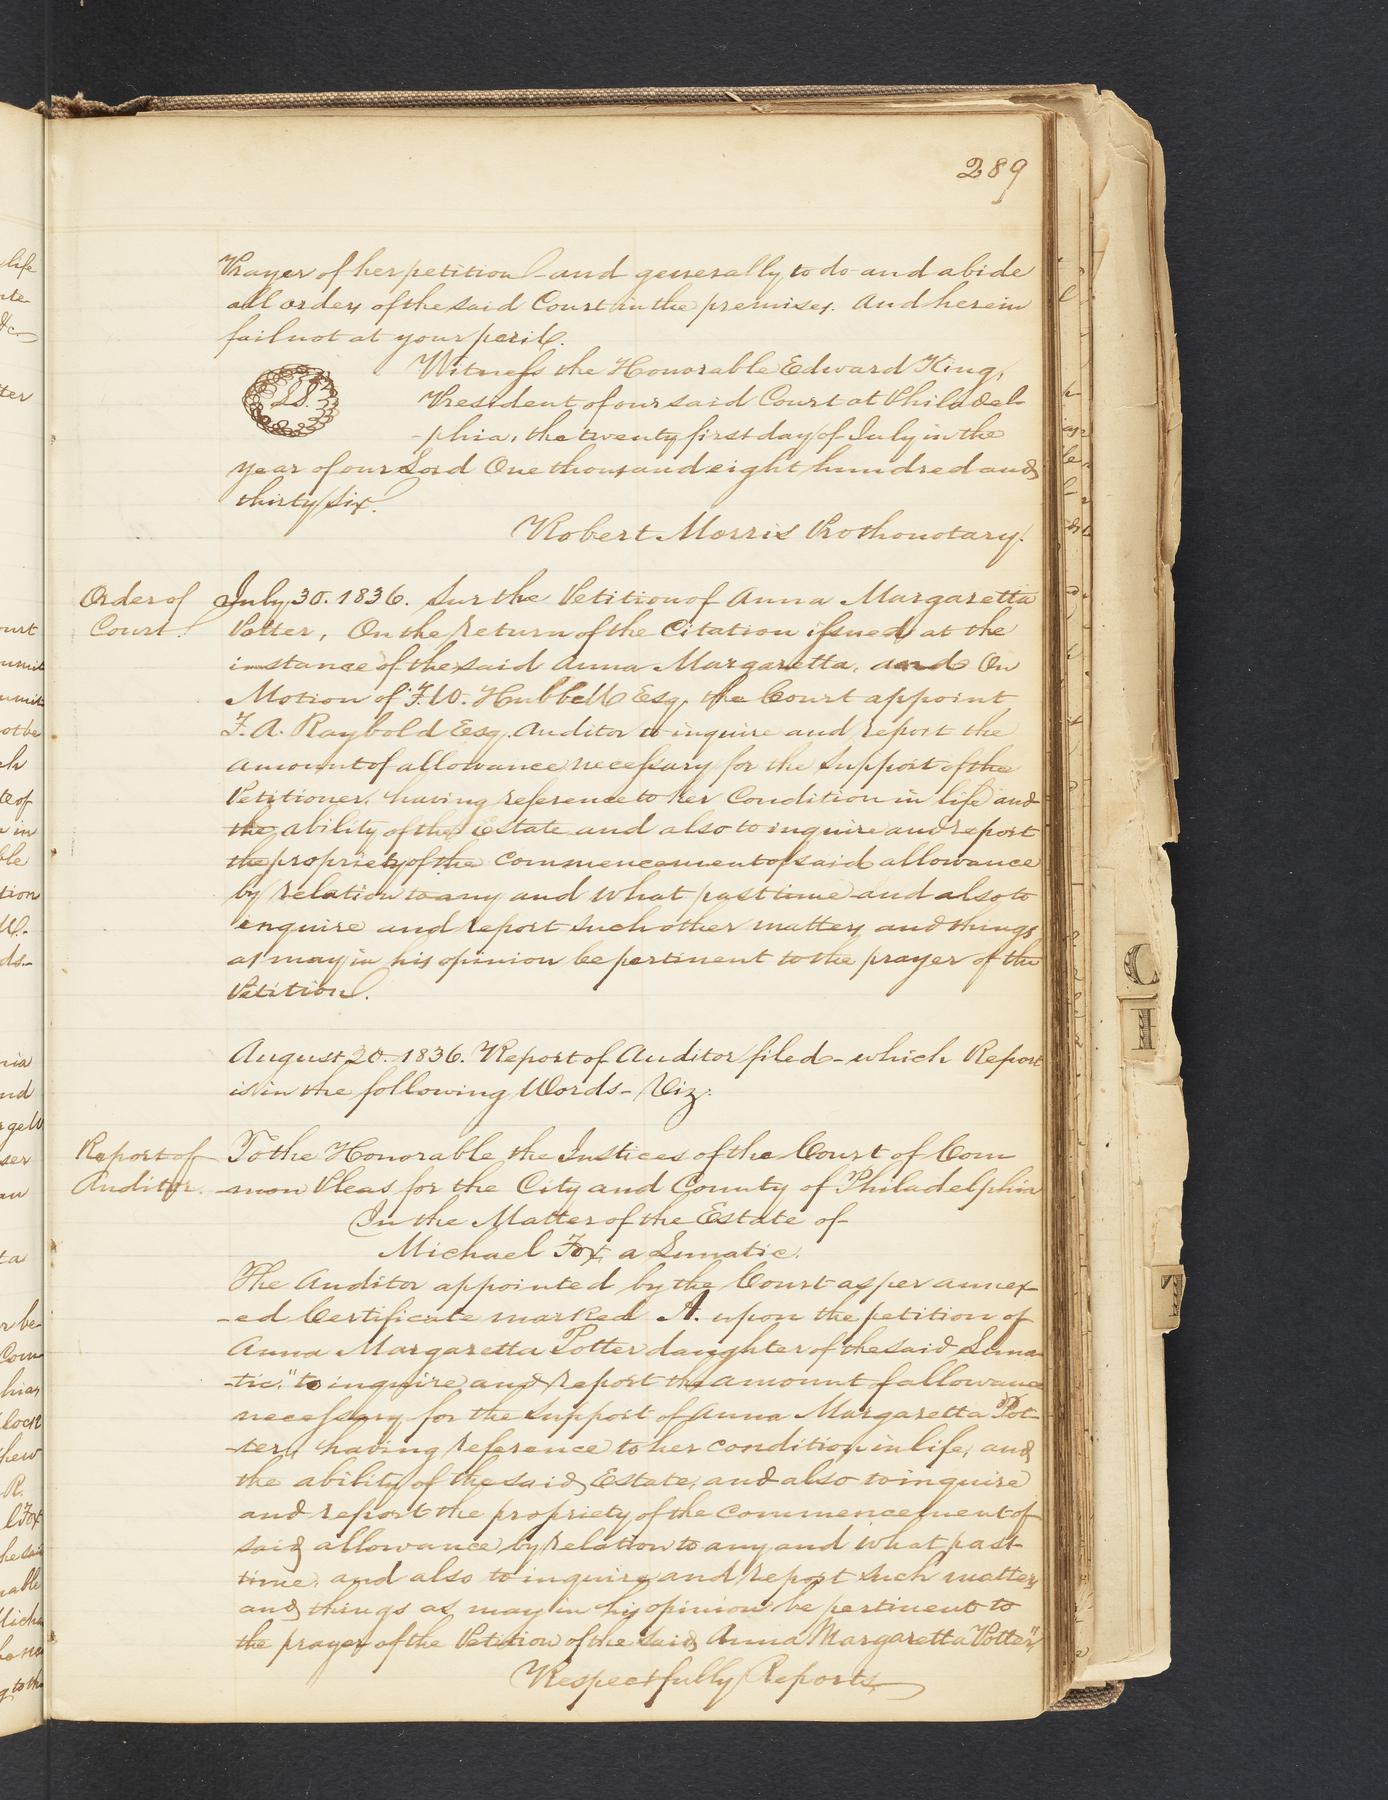 289
Prayer of her petition - and generally to do and abide
all orders of the said Court in the premises. And herein
fail not at your peril.
Witness the Honorable Edward King,
President of our said Court at Philadel-
-phia, the twenty first day of July in the
year of our Lord One thousand eight hundred and
thirty six.
Robert Morris Prothonotary.
Order of
Court.
July 30. 1836. Sur the Petition of Anna Margaretta
Potter, On the return of the Citation issued at the
instance of the said Anna Margaretta, and On
Motion of F. W. Hubbell Esq. the Court appoint
F. A. Raybold Esq. Auditor to inquire and report the
amount of allowance necessary for the support of the
Petitioner, having reference to her Condition in life and
the ability of the Estate and also to inquire and report
the propriety of the commencement of said allowance
by relation to any and what past time and also to
inquire and report such other matters and things
as may in his opinion be pertinent to the prayer of the
Petition.
August 20. 1836. Report of Auditor filed - which Report
is in the following Words - Viz:
Report of
Auditor.
To the Honorable the Justices of the Court of Com
-mon Pleas for the City and County of Philadelphia
In the Matter of the Estate of
Michael Fox, a Lunatic.
The Auditor appointed by the Court as per annex-
-ed Certificate marked A. upon the petition of
Anna Margaretta Potter daughter of the said Luna
-tic, "to inquire and report the amount of allowance
necessary for the support of Anna Margaretta Pot-
-ter, having reference to her condition in life, and
the ability of the said Estate, and also to inquire
and report the propriety of the commencement of
said allowance by relation to any and what past
time, and also to inquire and report such matters
and things as may in his opinion be pertinent to
the prayer of the Petition of the said Anna Margaretta Potter,"
Respectfully Reports